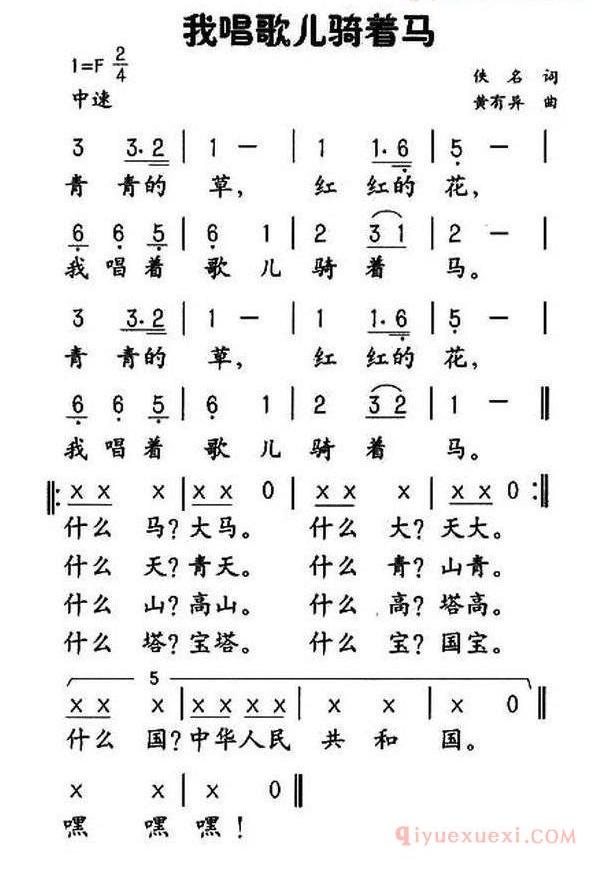 我唱歌儿骑着马
1=F 2/4
佚名 词
中速
黄有异 曲
3 3·2 | 1 — | 1 1·6 | 5 — |
青 青的 草, 红 红的 花,
6 6 5 | 6 1 | 2 3 1 | 2 — |
我 唱 着 歌 儿 骑 着 马。
3 3·2 | 1 — | 1 1·6 | 5 — |
青 青的 草, 红 红的 花,
6 6 5 | 6 1 | 2 3 2 | 1 — ‖
我 唱 着 歌 儿 骑 着 马。
‖: X X X | X X 0 | X X X | X X 0 :‖
什么 马? 大马。 什么 大? 天大。
什么 天? 青天。 什么 青? 山青。
什么 山? 高山。 什么 高? 塔高。
什么 塔? 宝塔。 什么 宝? 国宝。
5
X X X | X X X X | X X | X 0 ‖
什么 国? 中华人民 共 和 国。
X X | X 0 ‖
嘿 嘿 嘿!
qiyuexuexi.com